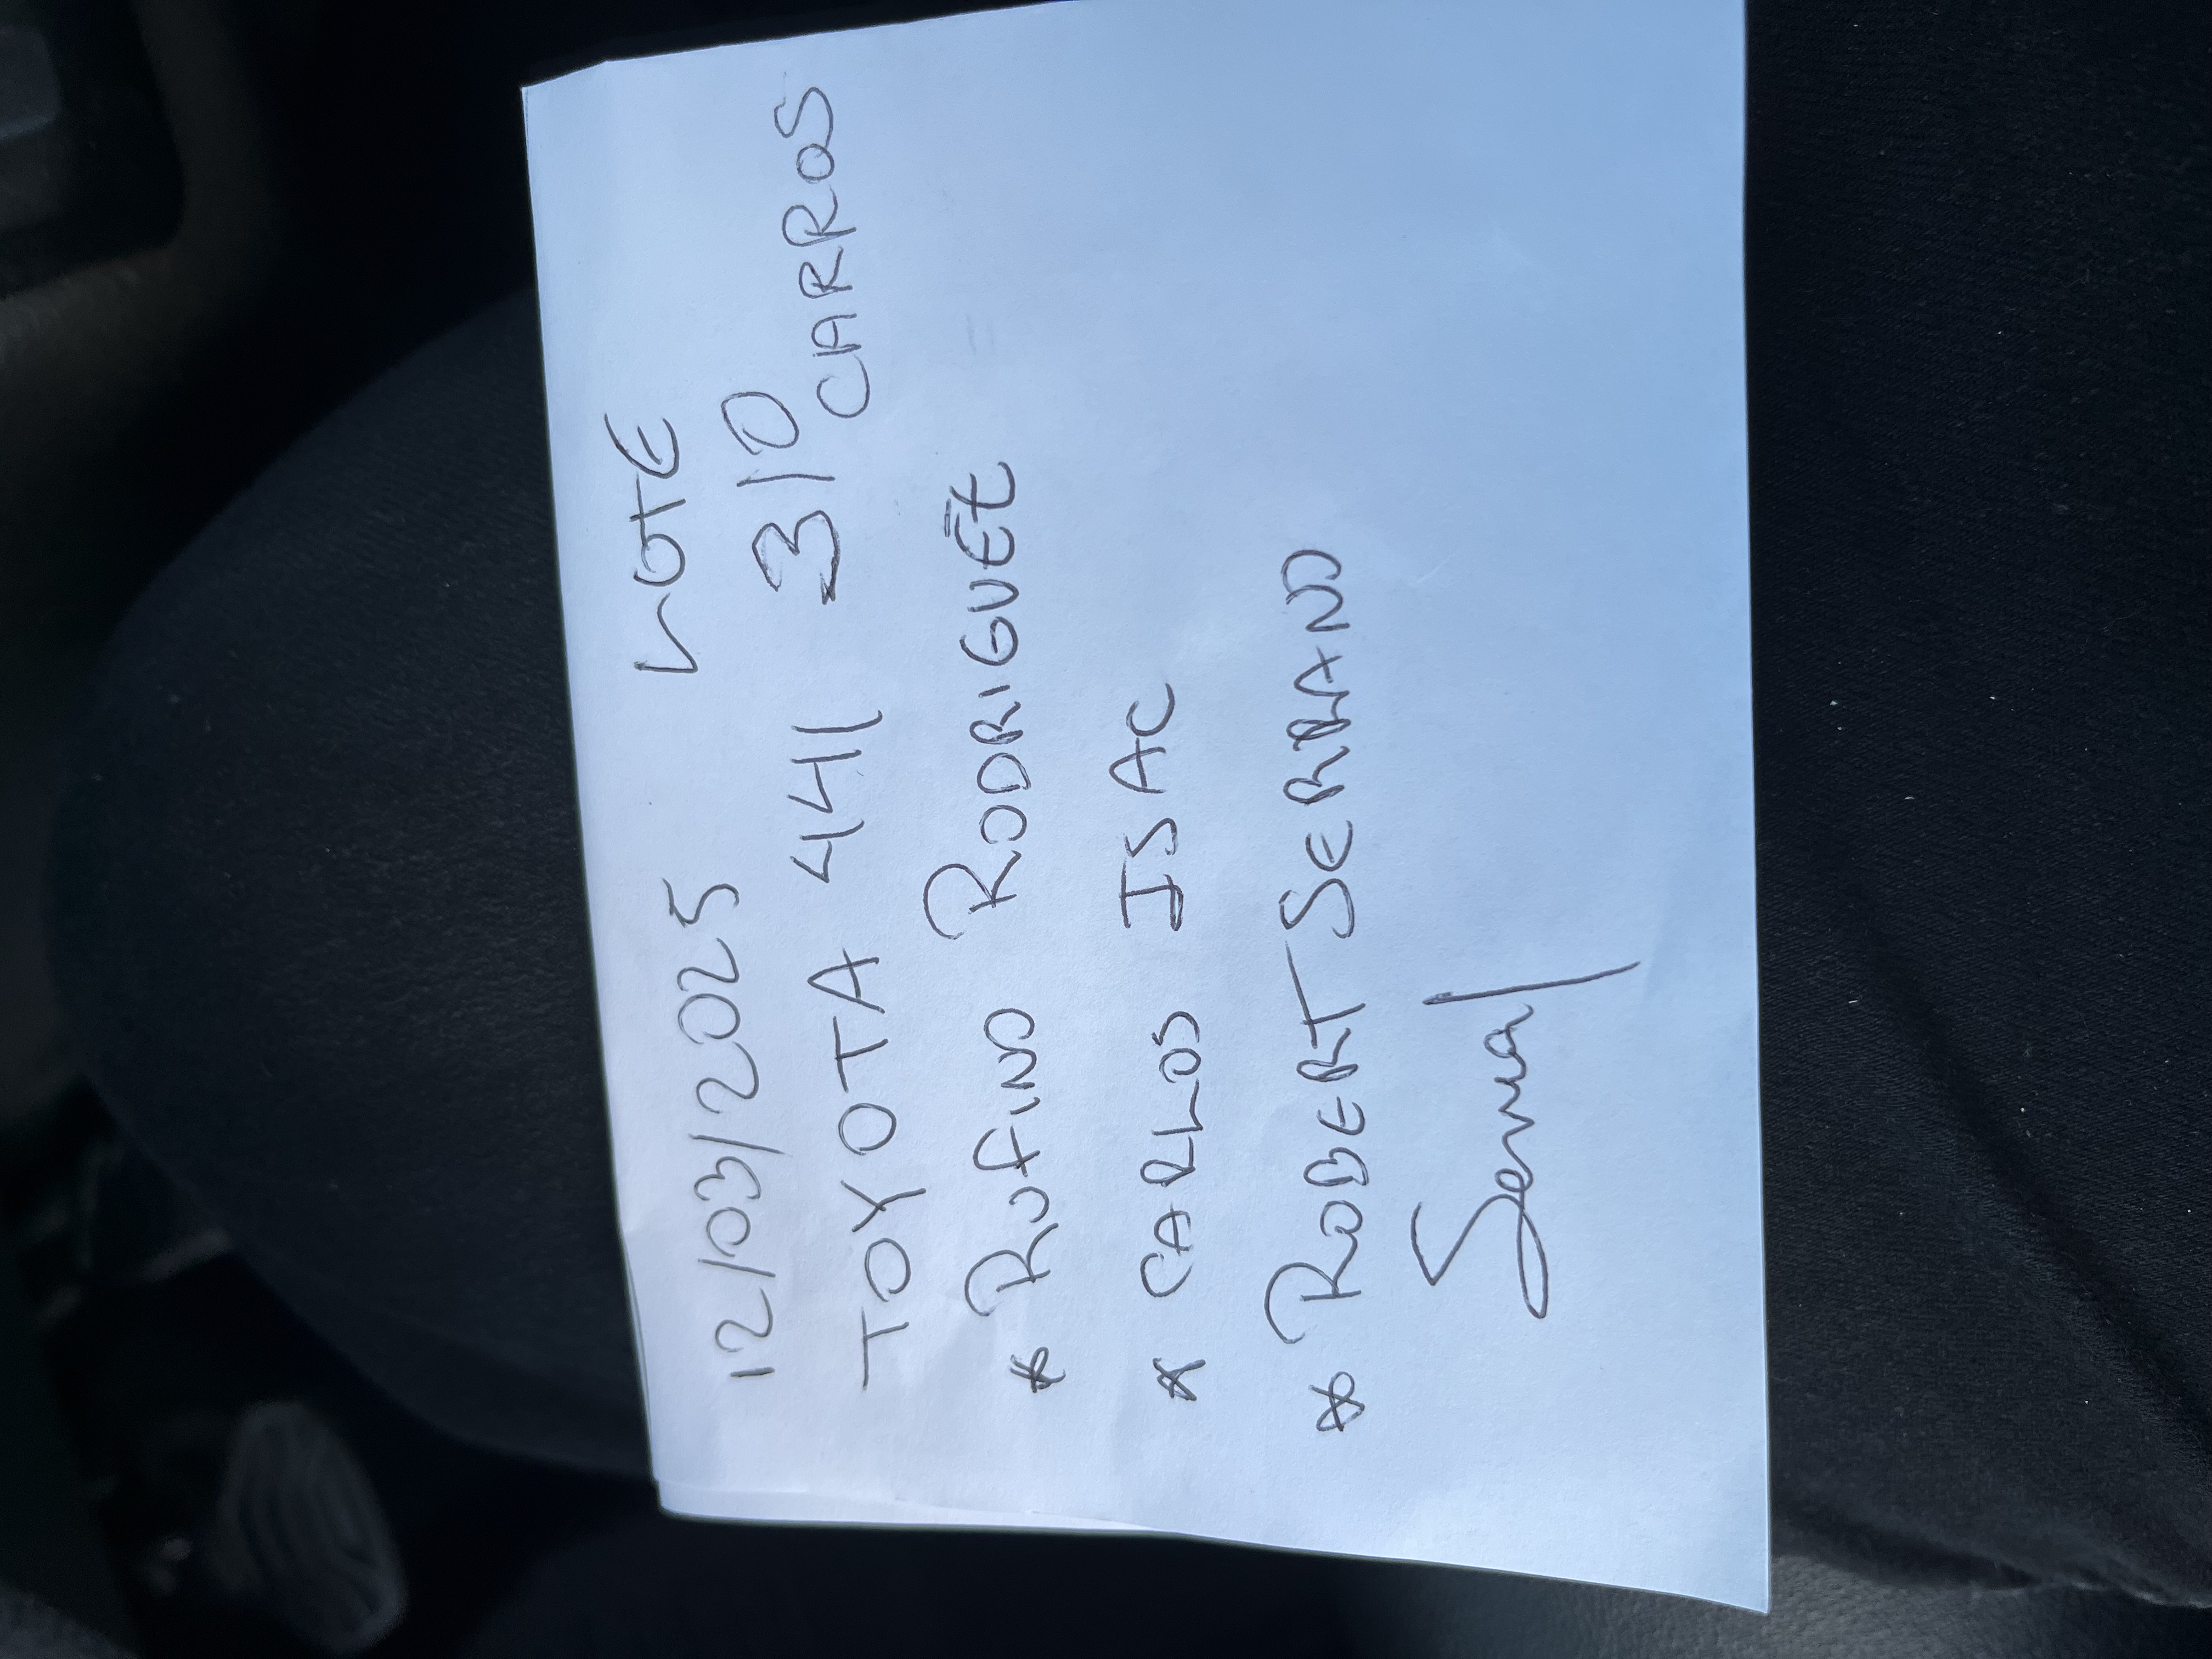 12/03/2025 LOTE
TOYOTA 441 310
CARROS
* RUFINO RODRIGUEZ
* CARLOS ISAC
* ROBERT SERRANO